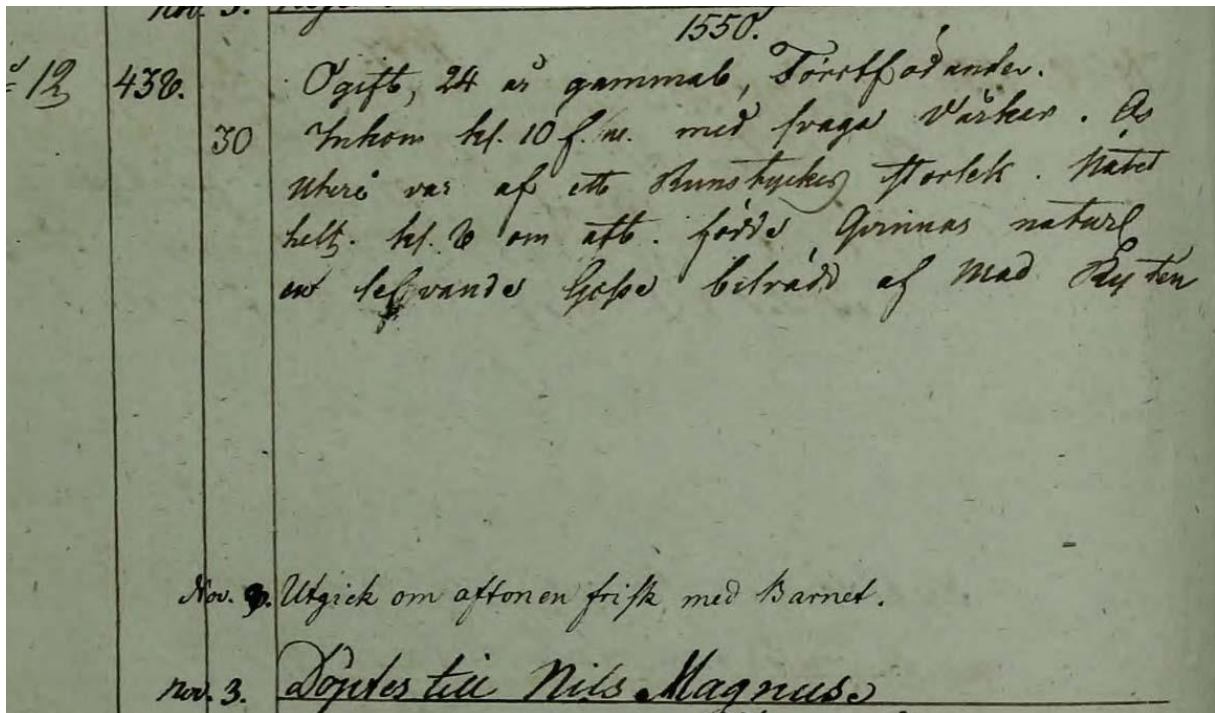 nov. 3.
1550.
12 438. Ogift, 24 år gammal, Förstföderander.
30 Inkom kl. 10 f.m. med svaga värkar. Os
uteri var af ett Runstyckes storlek. Nätet
helt. kl. 8 om aft. födde Qvinnan naturl
en lefvande Gosse biträdd af Mad
Nov. 9. Utgick om aftonen frisk med Barnet.
nov. 3. Döptes till Nils Magnus